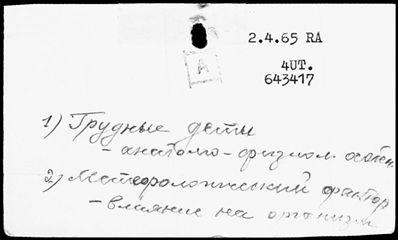 2.4.65 RA
A
4UT.
643417
1) Грудные дети
- анатомо-физиол. особен.
2) Метеорологический фактор
- влияние на организм